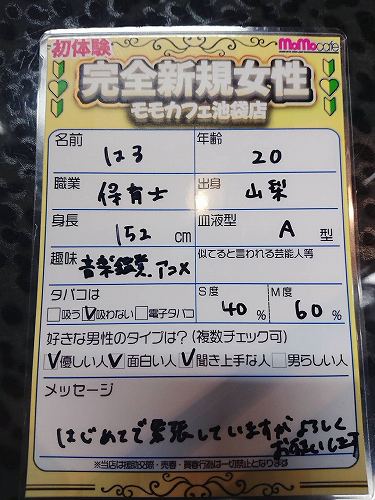 初体験
MoMocafe
完全新規女性
モモカフェ池袋店
名前 はる 年齢 20
職業 保育士 出身 山梨
身長 152 cm 血液型 A 型
趣味 音楽鑑賞、アニメ 似てると言われる芸能人等
タバコは S度 M度
吸う 吸わない 電子タバコ 40% 60%
好きな男性のタイプは?(複数チェック可)
優しい人 面白い人 聞き上手な人 男らしい人
メッセージ
はじめてで緊張していますがよろしく
お願いします
※当店は援助交際・売春・買春行為は一切禁止となります